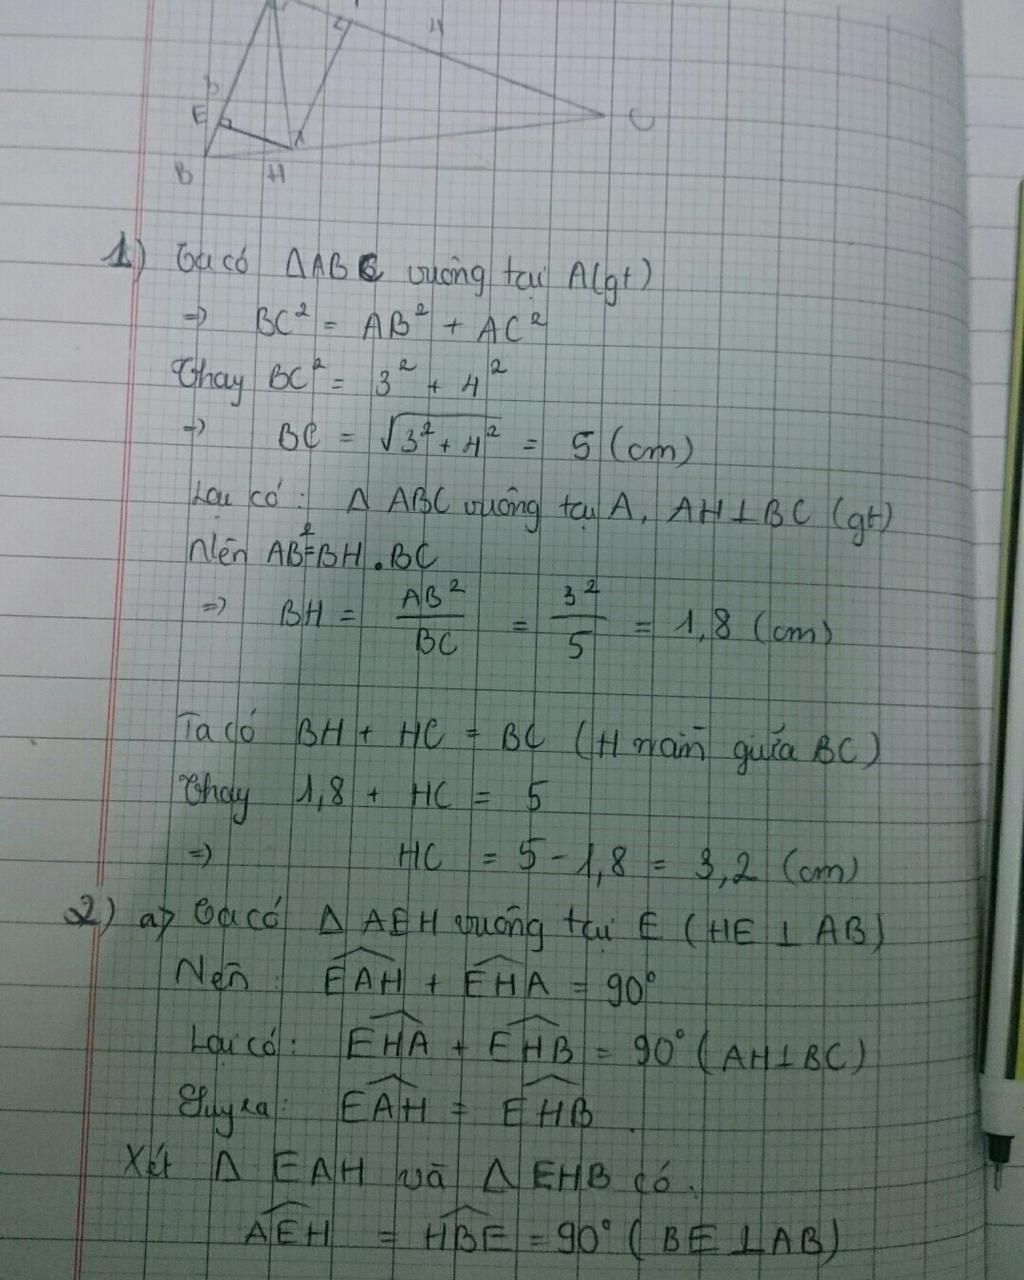 E
C
B
H
1) Ta có ΔABC vuông tại A (gt)
=> BC² = AB² + AC²
Thay BC² = 3² + 4²
=> BC = √3² + 4² = 5 (cm)
Lại có: Δ ABC vuông tại A, AH ⊥ BC (gt)
Nên AB² = BH . BC
=> BH = AB²/BC = 3²/5 = 1,8 (cm)
Ta có BH + HC = BC (H nằm giữa BC)
Thay 1,8 + HC = 5
=> HC = 5 - 1,8 = 3,2 (cm)
2) a) Ta có Δ AEH vuông tại E (HE ⊥ AB)
Nên: EAH + EHA = 90°
Lại có: EHA + EHB = 90° (AH ⊥ BC)
Suy ra: EAH = EHB.
Xét Δ EAH và Δ EHB có.
AEH = HBE = 90° (BE ⊥ AB)